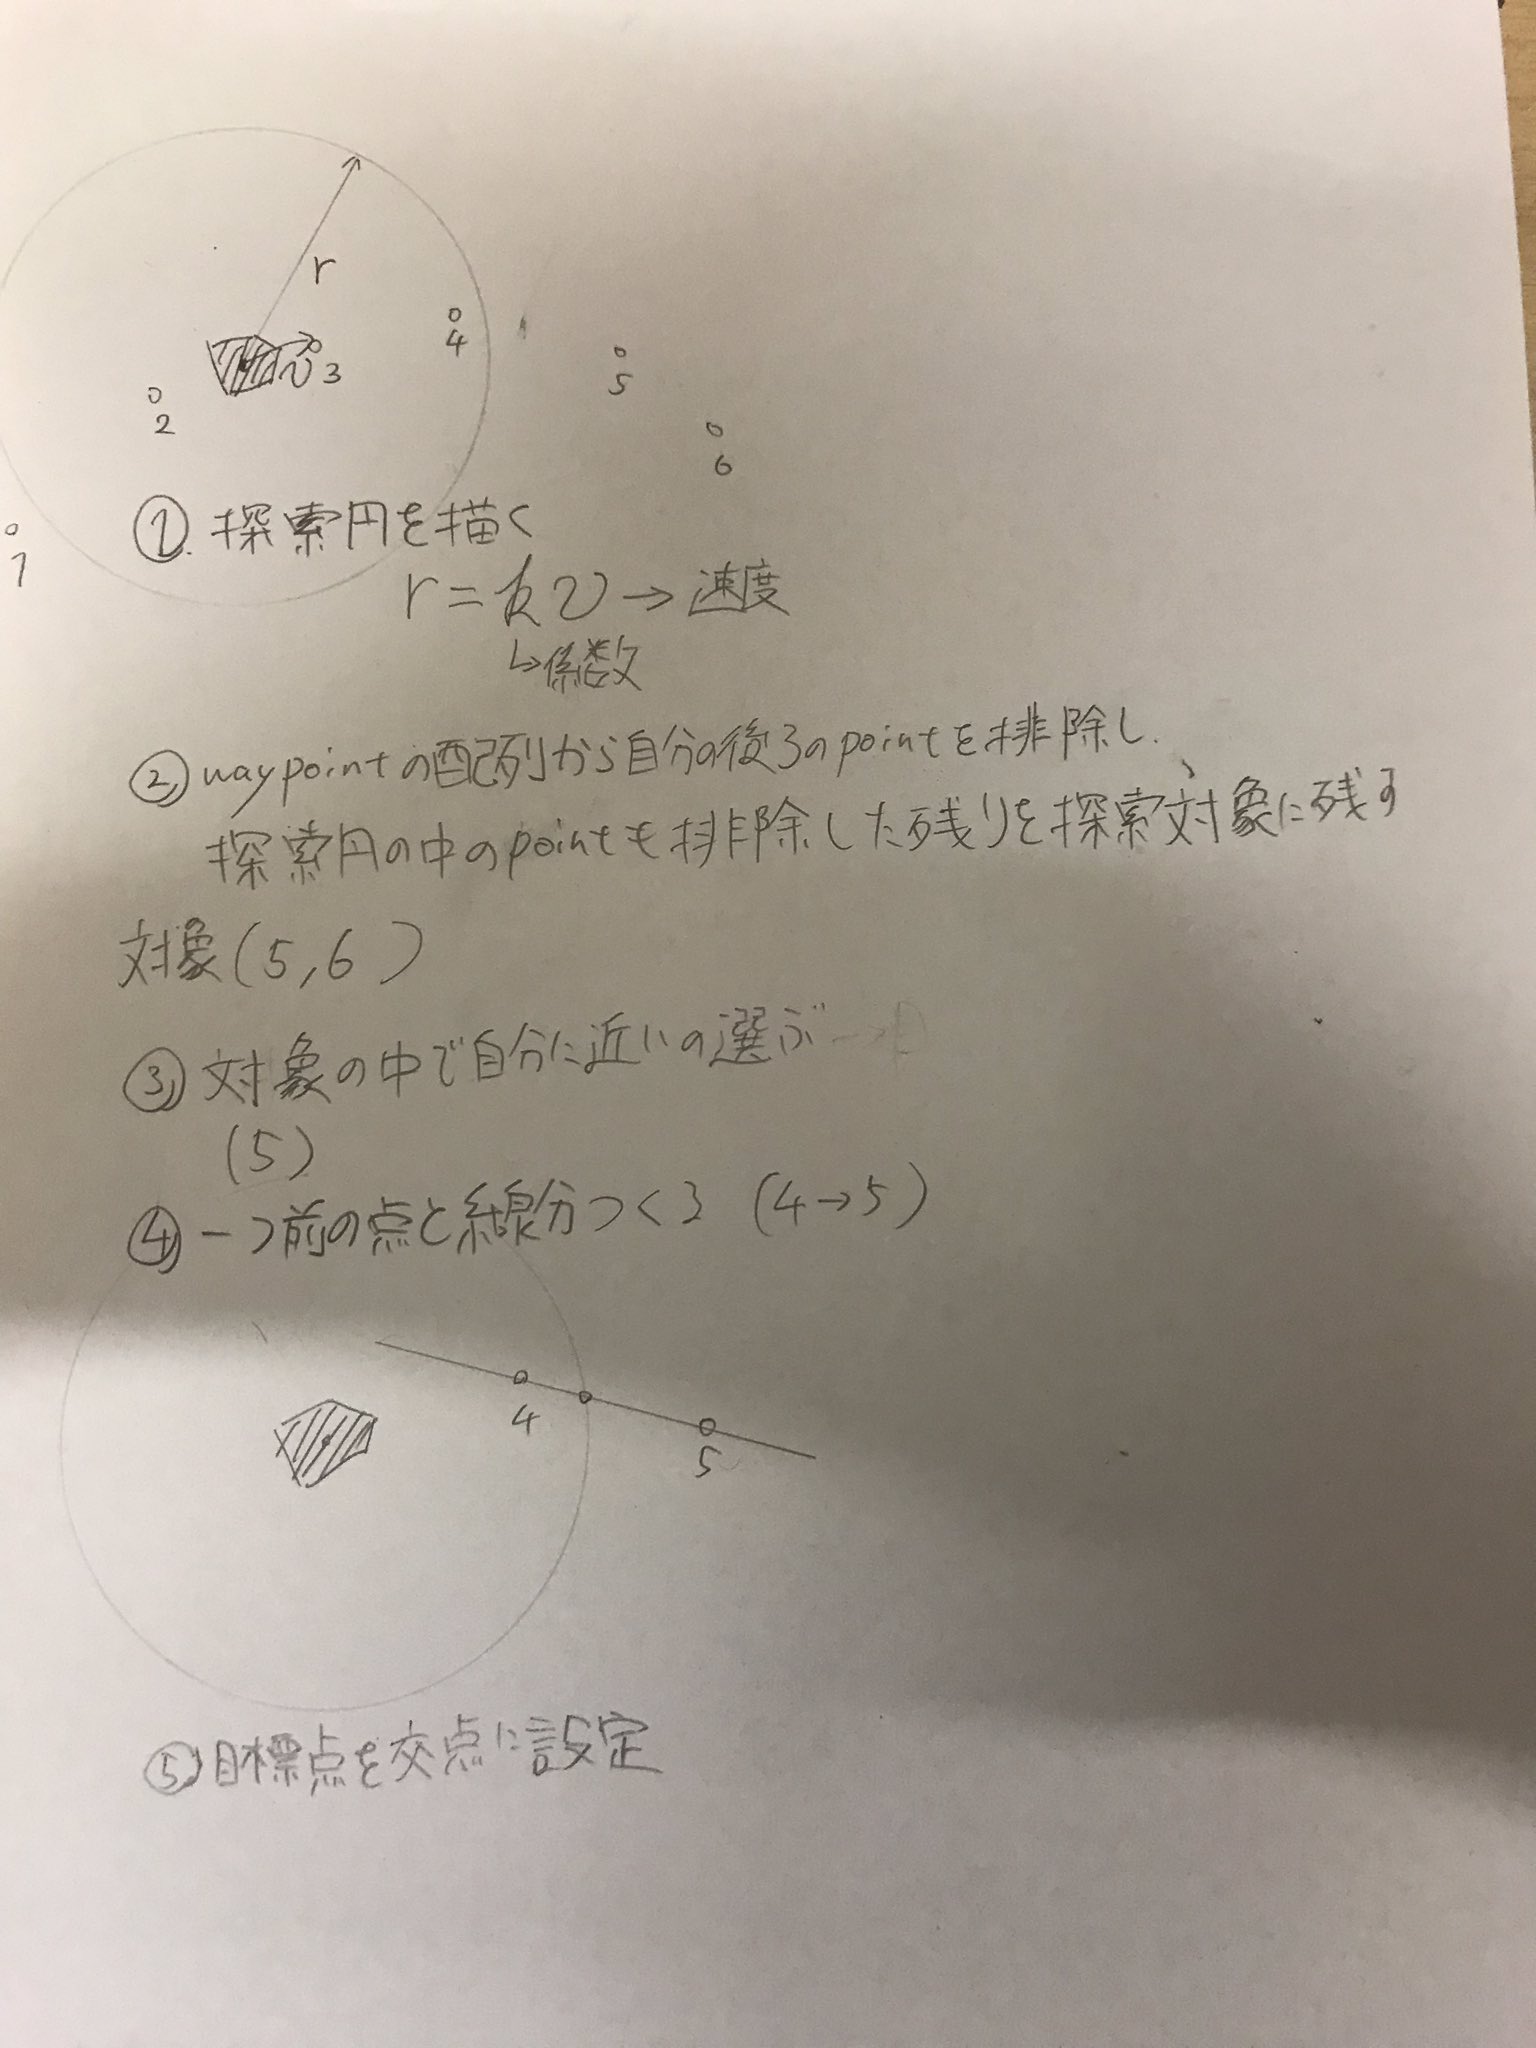 r
v
3
4
2
5
6
1
①. 探索円を描く
r = kv → 速度
↳係数
② waypointの配列から自分の後ろのpointを排除し、
探索円の中のpointも排除した残りを探索対象に残す
対象(5,6)
③ 対象の中で自分に近いの選ぶ
(5)
④ 一つ前の点と線分つくる (4→5)
4
5
⑤ 目標点を交点に設定